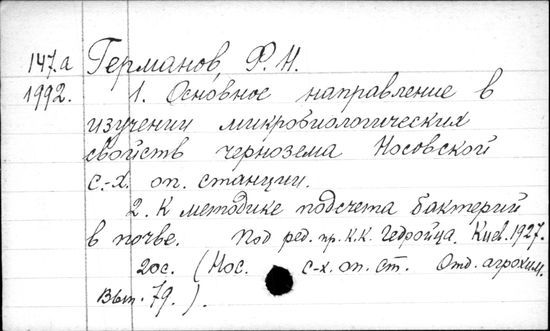 147.а Германов Ф.Н.
1992. 1. Основное направление в
изучении микробиологических
свойств чернозема Носовской
с.-х. оп. станции.
2. К методике подсчета бактерий
в почве. Под ред. пр. К.К. Гедройца. Киев. 1927.
20с. (Нос. с-х. оп. ст. Отд. агрохим.
Вып. 79.).